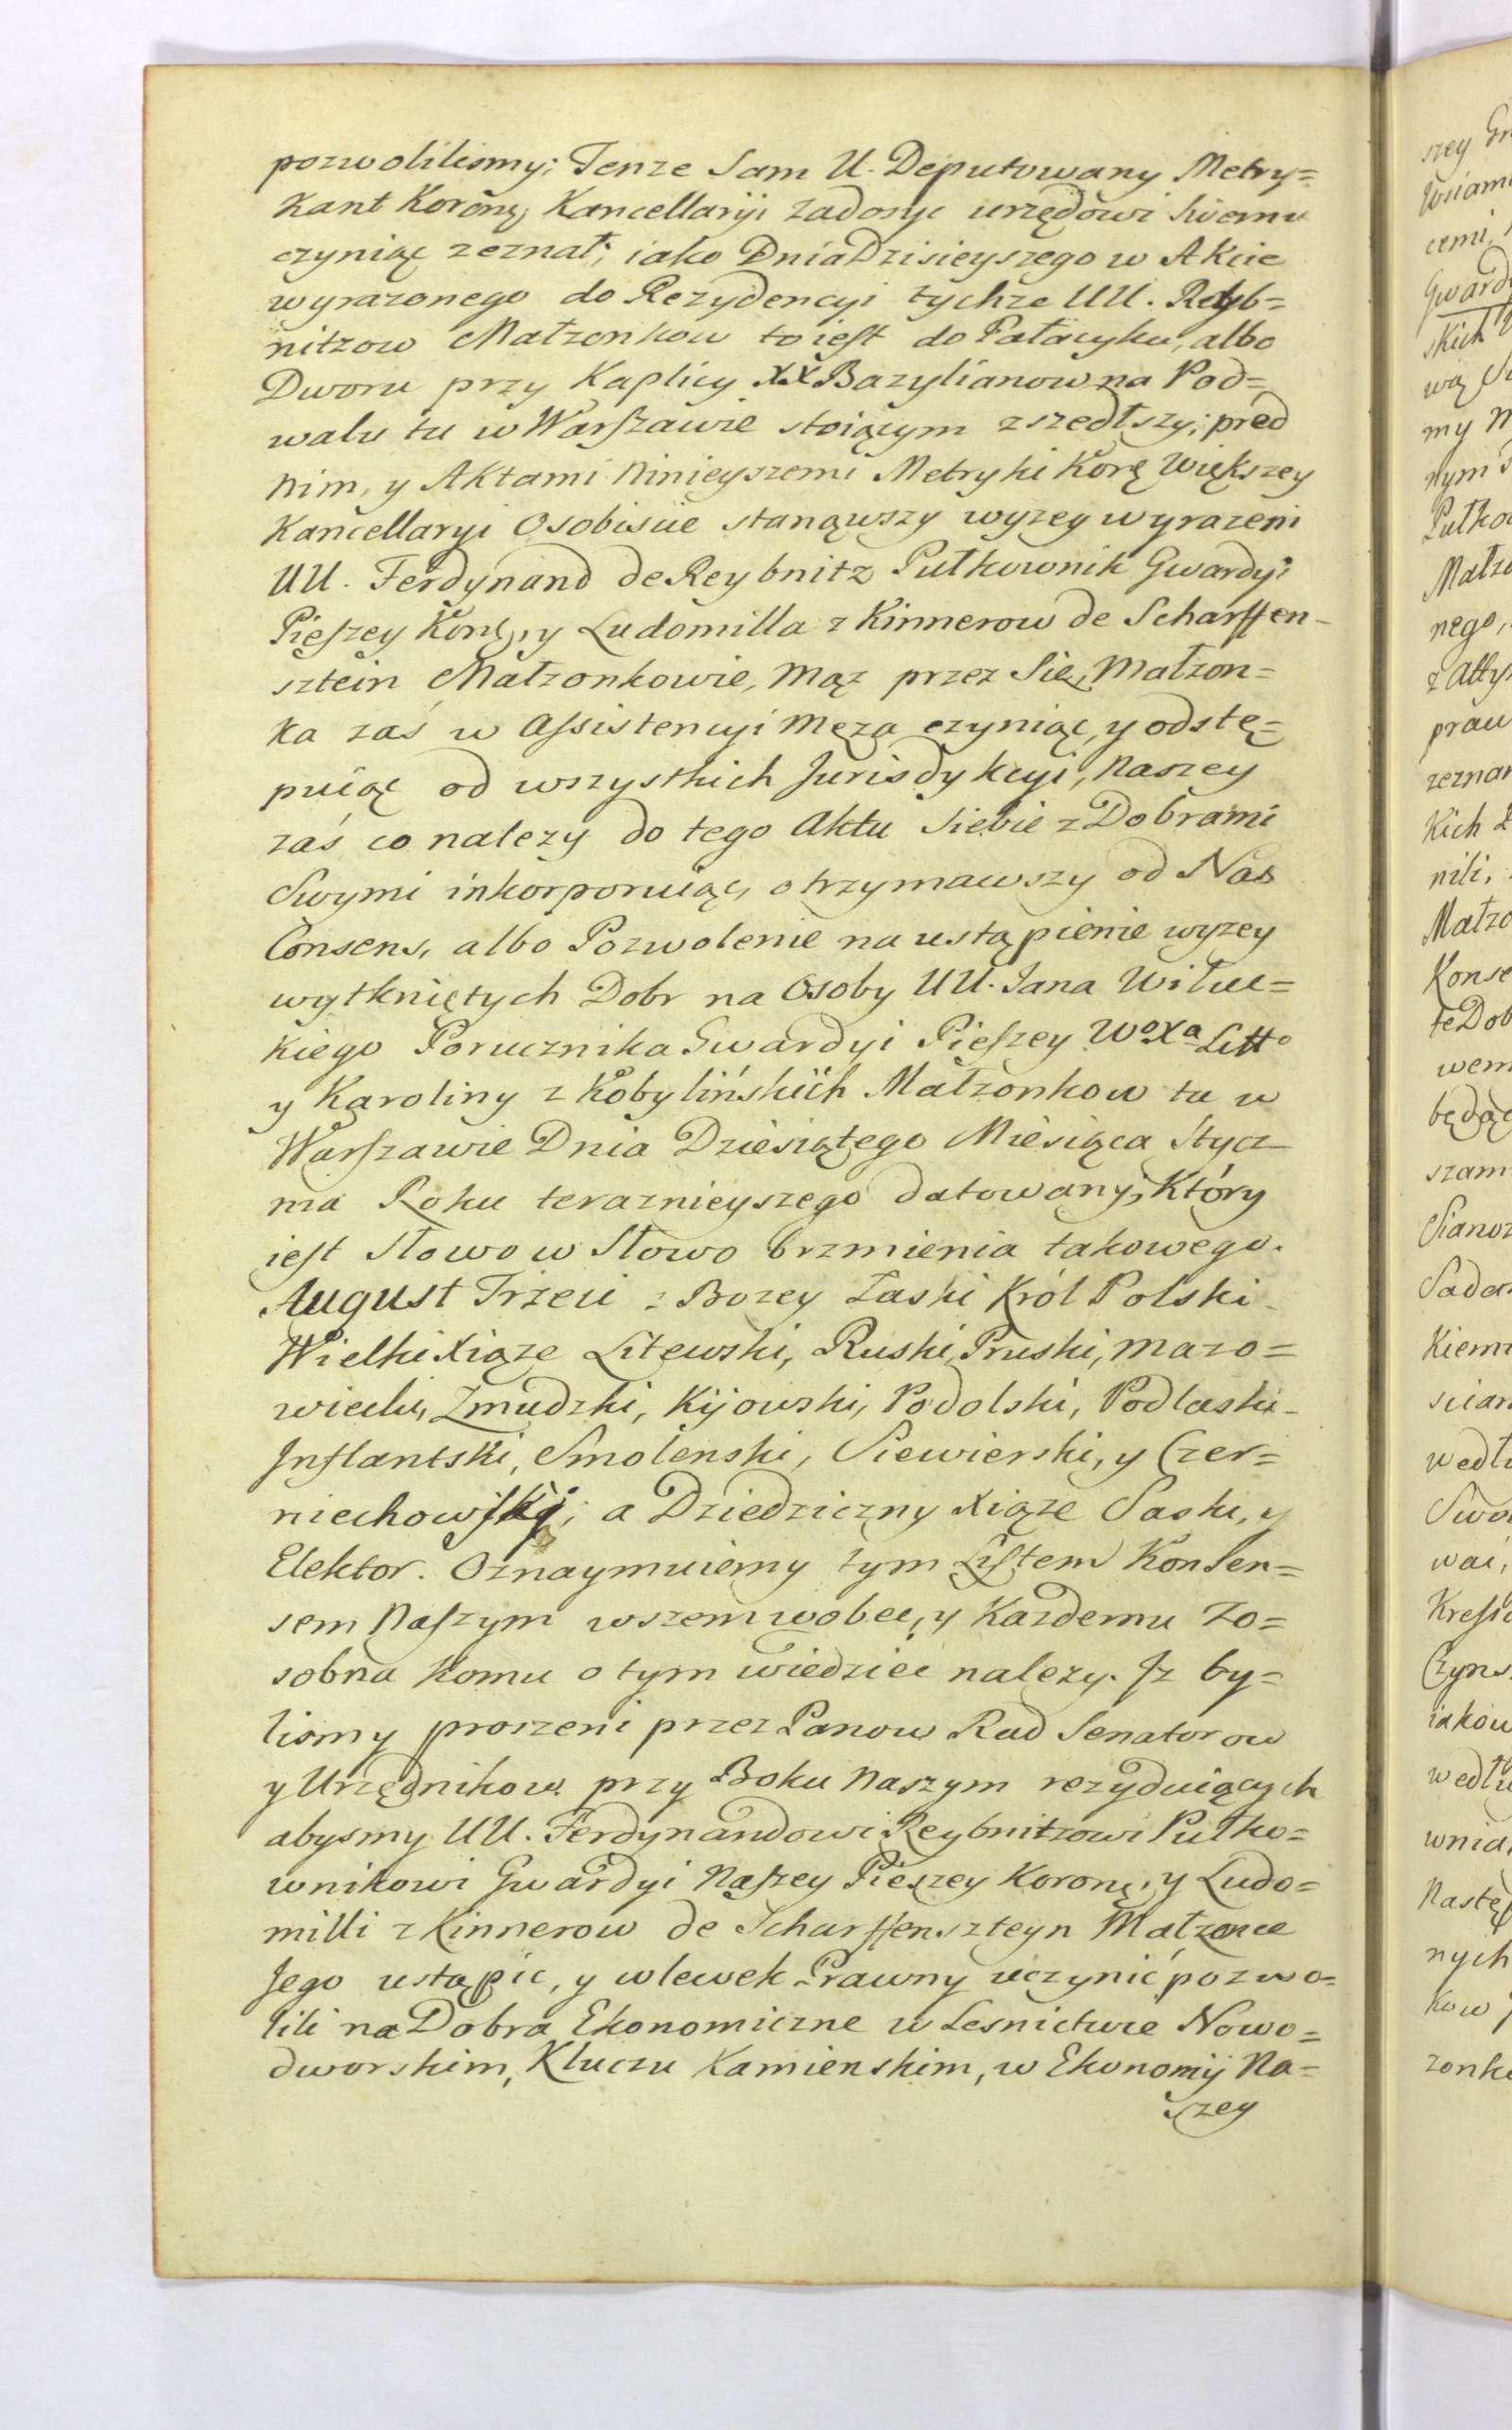 pozwolilismy; Tenze Sam U. Deputowany Metry=
kant Koronȩ, Kancellaryi zadosyc urzędowi swemu
czyniąc zeznał; iako Dnia Dzisieyszego w Akcie
wyrazonego do Rezydencyi tychze UU. Reyb=
nitzow Małzonkow to iest do Pałacyku, albo
Dworu przy Kaplicy XX Bazylianow na Pod=
walu tu w Warszawie stoiącym zszedłszy; pred
nim, y Aktami Ninieyszemi Metryki Korȩ Większey
Kancellaryi Osobiscie stanąwszy wyzey wyrazeni
UU. Ferdynand de Reybnitz Pułkownik Gwardyi
Pieszey Korȩ, y Ludomilla z Kinnerow de Scharffen-
sztein Małzonkowie, Mąz przez Się, Małzon=
ka zaś w Assistencyi Męza czyniąc, y odstę=
puiąc od wszystkich Jurisdykcyi, Naszey
zaś co nalezy do tego Aktu Siebie z Dobrami
Swymi inkorporuiąc, otrzymawszy od Nas
Consens, albo Pozwolenie na ustąpienie wyzey
wytkniętych Dobr na Osoby UU. Jana Wiłuc=
kiego Porucznika Gwardyi Pieszey W°Xª Litt°
y Karoliny z Kobylińskich Małzonkow tu w
Warszawie Dnia Dziesiątego Miesiąca Stycz-
nia Roku teraznieyszego datowany, Który
iest Słowo w Słowo brzmienia takowego.
August Trzeci z Bozey Łaski Król Polski
Wielki Xiąze Litewski, Ruski, Pruski, Mazo=
wiecki, Zmudzki, Kijowski, Podolski, Podlaski
Inflantski, Smolenski, Siewierski, y Czer=
niechowski; a Dziedziczny Xiąze Saski, y
Elektor. Oznaymuiemy tym Listem Konsen=
sem Naszym wszem wobec, y Kazdemu zo=
sobna komu o tym wiedziec nalezy. Iz by=
lismy proszeni przez Panow Rad Senatorow
y Urzędnikow przy Boku Naszym rezyduiących
abysmy UU. Ferdynandowi Reybnitzowi Pułko=
wnikowi Gwardyi Naszey Pieszey Koronȩ, y Ludo=
milli z Kinnerow de Scharffenszteyn Małzonce
Jego ustąpic, y wlewek Prawny uczynić pozwo=
lili na Dobra Ekonomiczne w Lesnictwie Nowo=
dworskim, Kluczu Kamienskim, w Ekonomij Na=
szey